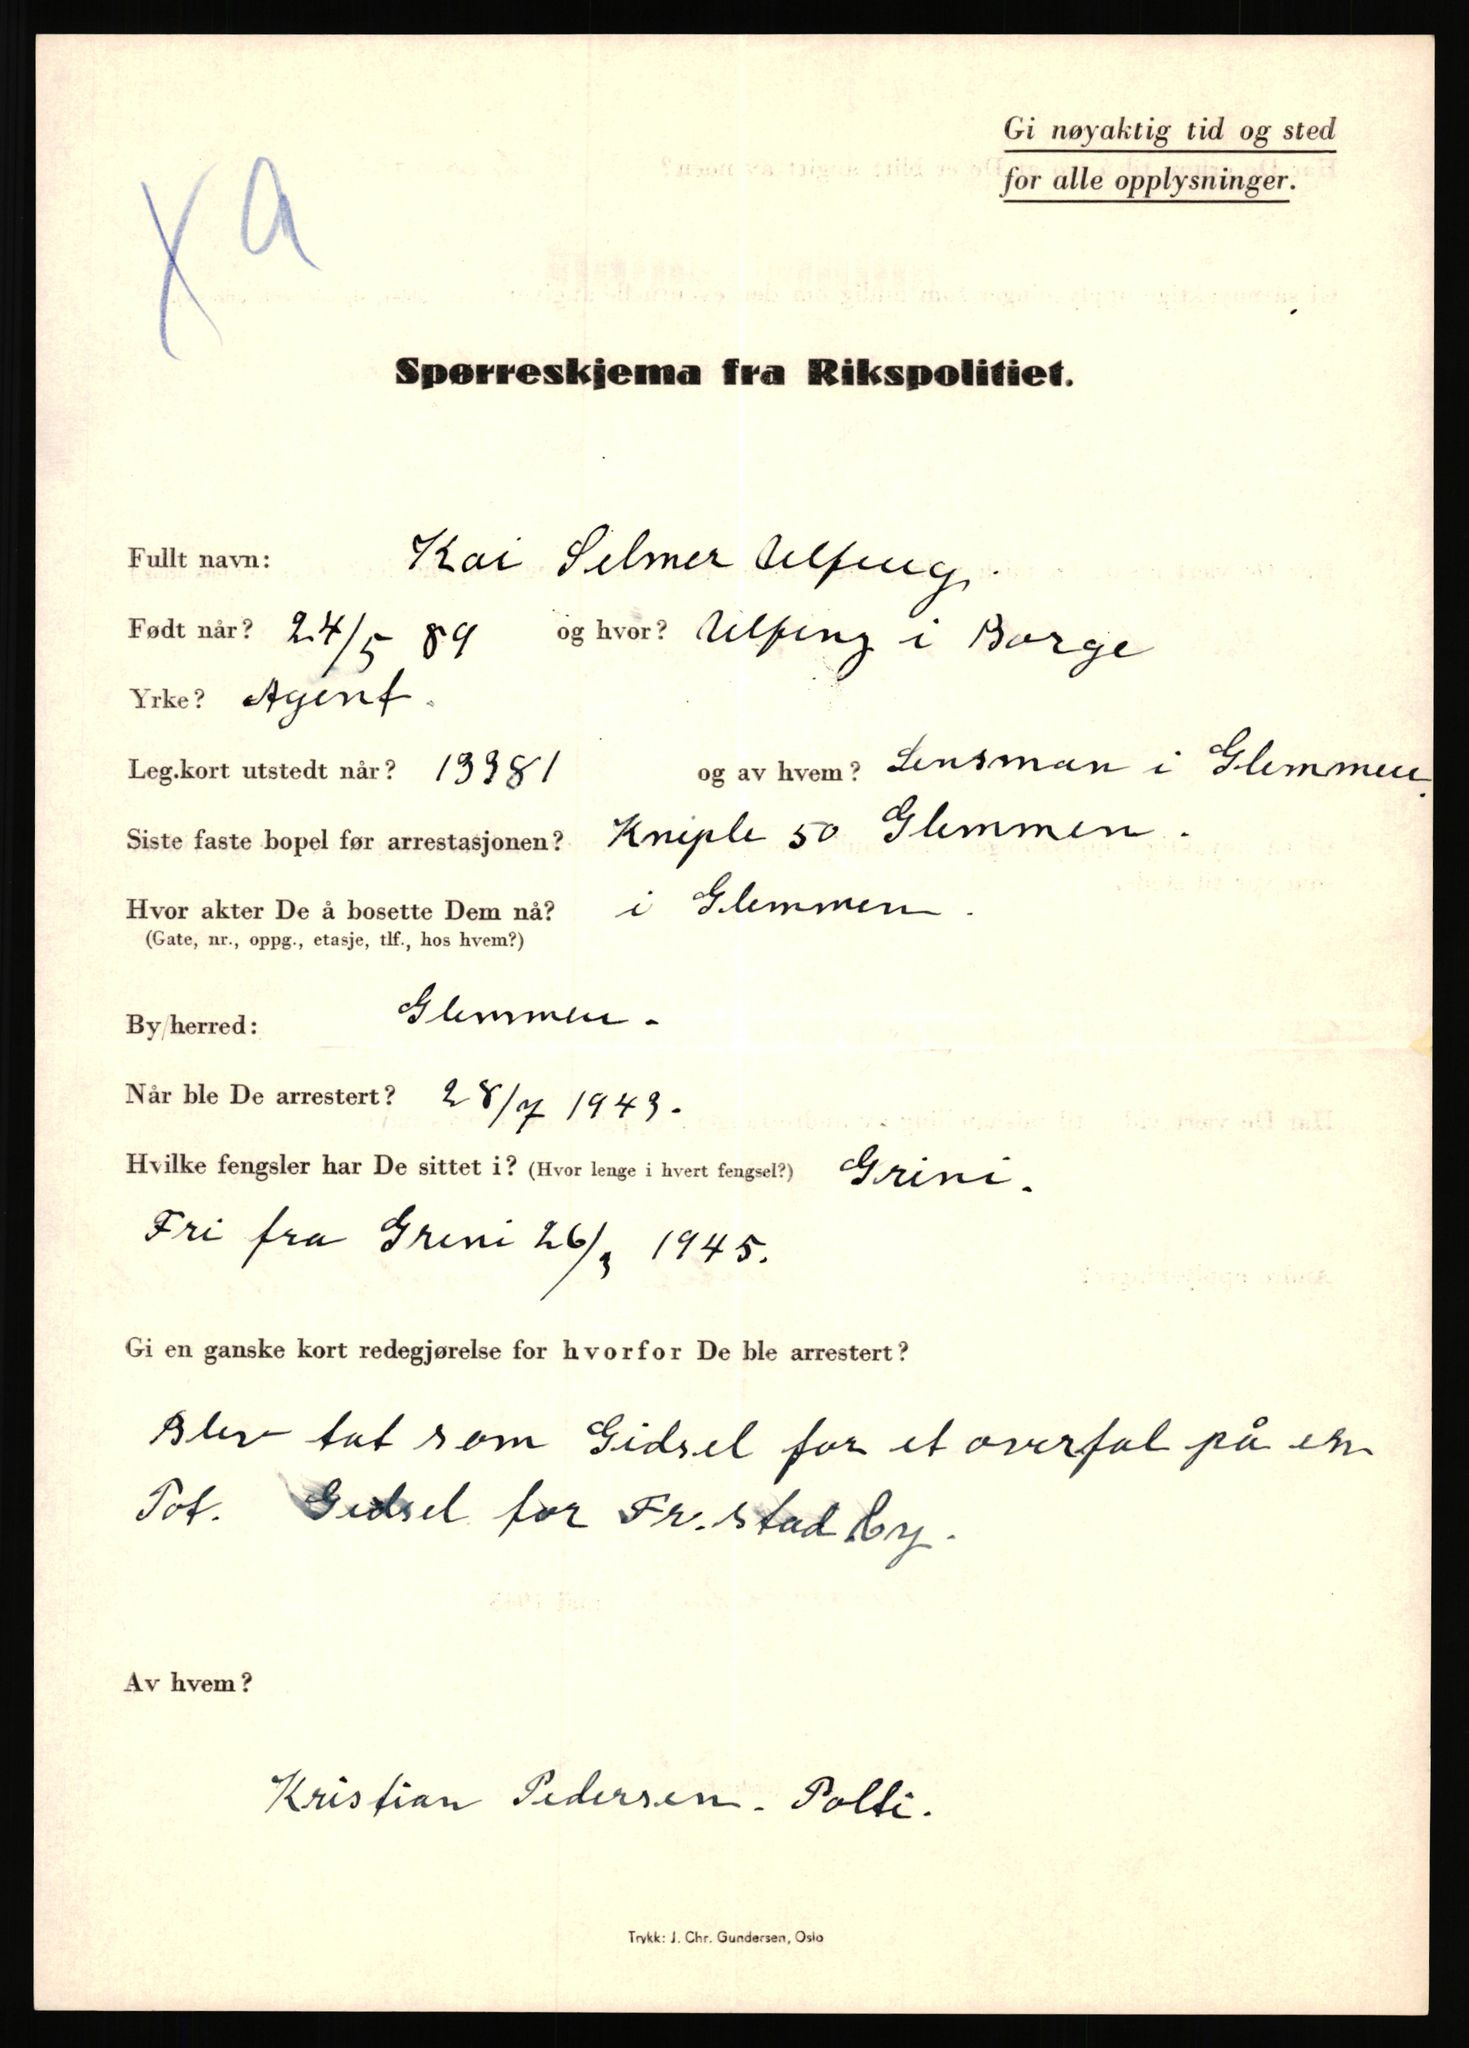 Gi nøyaktig tid og sted
for alle opplysninger.
X a
Spørreskjema fra Rikspolitiet.
Fullt navn: Kai Selmer Ulfeng.
Født når? 24/5 89 og hvor? Ulfeng i Borge
Yrke? Agent.
Leg.kort utstedt når? 13381 og av hvem? Lensman i Glemmen.
Siste faste bopel før arrestasjonen? Kniple 50 Glemmen.
Hvor akter De å bosette Dem nå? i Glemmen.
(Gate, nr., oppg., etasje, tlf., hos hvem?)
By/herred: Glemmen.
Når ble De arrestert? 28/7 1943.
Hvilke fengsler har De sittet i? (Hvor lenge i hvert fengsel?) Grini.
Fri fra Grini 26/3 1945.
Gi en ganske kort redegjørelse for hvorfor De ble arrestert?
Blev tat som Gidsel for et overfal på en
Pot. Gidsel for Fr.stad by.
Av hvem?
Kristian Pedersen. Polti.
Trykk: J. Chr. Gundersen, Oslo